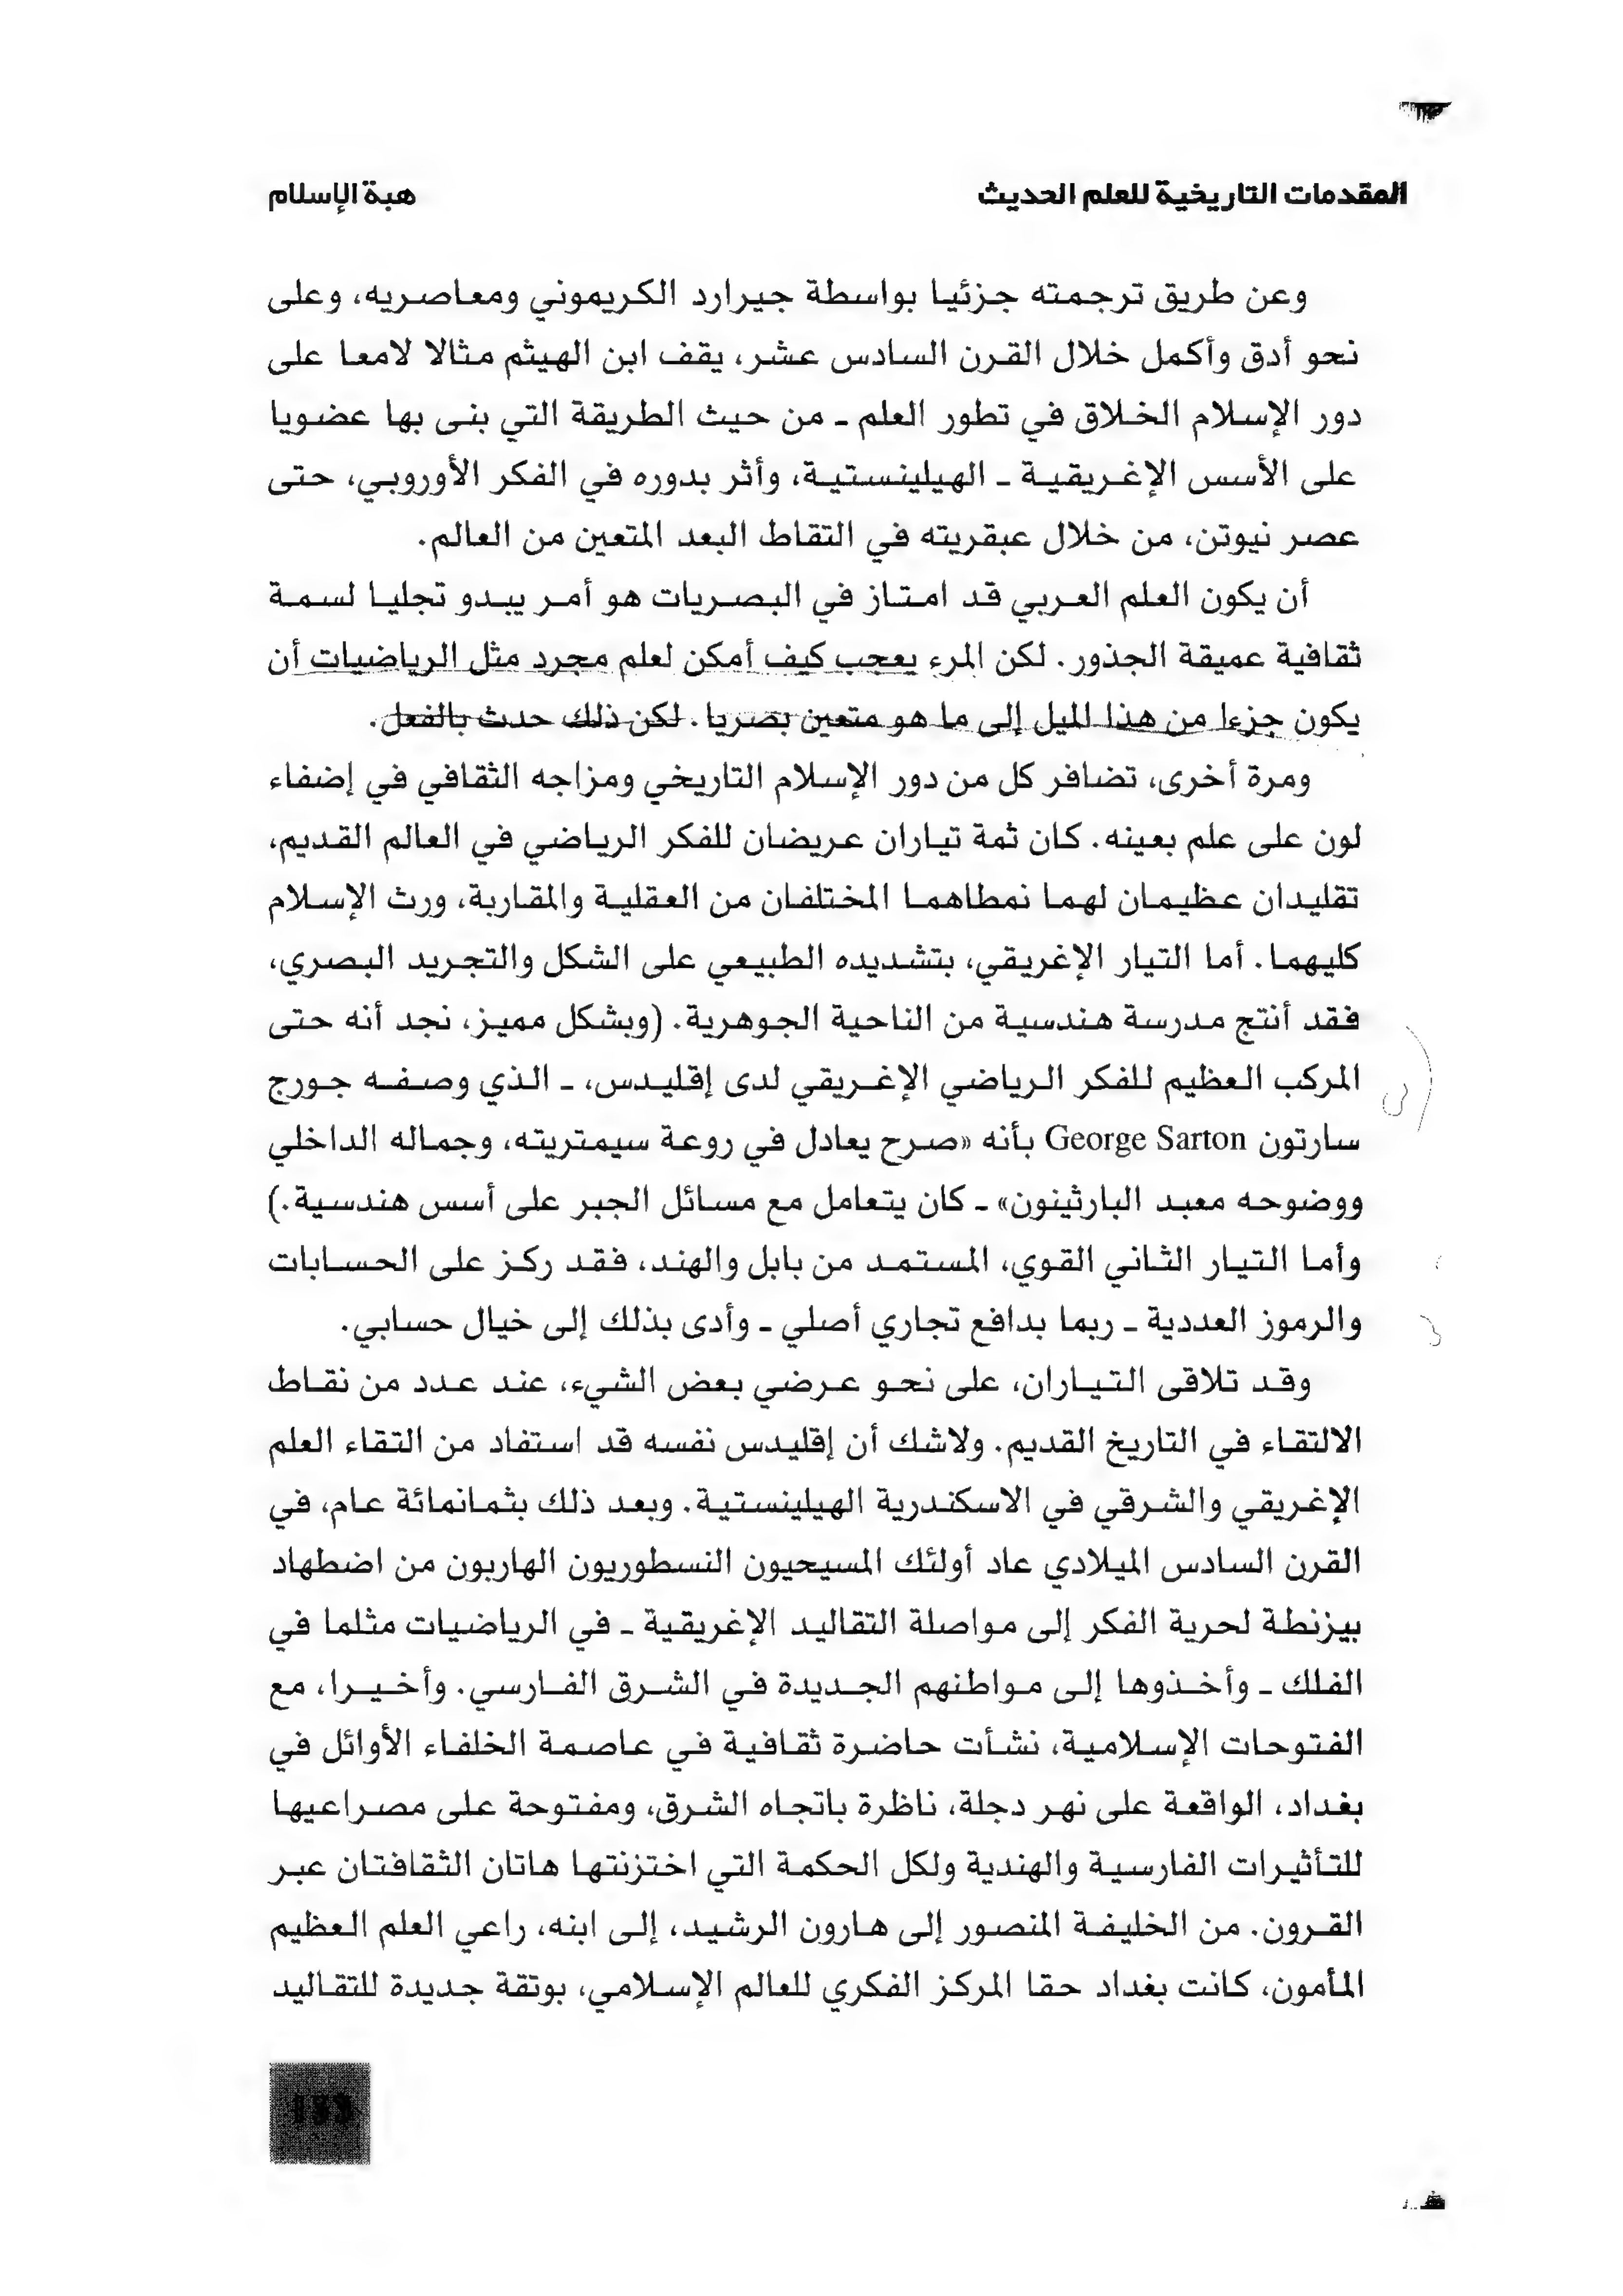 المقدمات التاريخية للعلم الحديث
هبة الإسلام
وعن طريق ترجمته جزئيا بواسطة جيرارد الكريموني ومعاصريه، وعلى
نحو أدق وأكمل خلال القرن السادس عشر، يقف ابن الهيثم مثالا لامعا على
دور الإسلام الخلاق في تطور العلم ـ من حيث الطريقة التي بنى بها عضويا
على الأسس الإغريقية ـ الهيلينستية، وأثر بدوره في الفكر الأوروبي، حتى
عصر نيوتن، من خلال عبقريته في التقاط البعد المتعين من العالم.
أن يكون العلم العربي قد امتاز في البصريات هو أمر يبدو تجليا لسمة
ثقافية عميقة الجذور. لكن المرء يعجب كيف أمكن لعلم مجرد مثل الرياضيات أن
يكون جزءا من هذا الميل إلى ما هو متعين بصريا. لكن ذلك حدث بالفعل.
ومرة أخرى، تضافر كل من دور الإسلام التاريخي ومزاجه الثقافي في إضفاء
لون على علم بعينه. كان ثمة تياران عريضان للفكر الرياضي في العالم القديم،
تقليدان عظيمان لهما نمطاهما المختلفان من العقلية والمقاربة، ورث الإسلام
كليهما. أما التيار الإغريقي، بتشديده الطبيعي على الشكل والتجريد البصري،
فقد أنتج مدرسة هندسية من الناحية الجوهرية. (وبشكل مميز، نجد أنه حتى
المركب العظيم للفكر الرياضي الإغريقي لدى إقليدس، ـ الذي وصفه جورج
سارتون George Sarton بأنه «صرح يعادل في روعة سيمتريته، وجماله الداخلي
ووضوحه معبد البارثينون» ـ كان يتعامل مع مسائل الجبر على أسس هندسية.)
وأما التيار الثاني القوي، المستمد من بابل والهند، فقد ركز على الحسابات
والرموز العددية ـ ربما بدافع تجاري أصلي ـ وأدى بذلك إلى خيال حسابي.
وقد تلاقى التياران، على نحو عرضي بعض الشيء، عند عدد من نقاط
الالتقاء في التاريخ القديم. ولاشك أن إقليدس نفسه قد استفاد من التقاء العلم
الإغريقي والشرقي في الاسكندرية الهيلينستية. وبعد ذلك بثمانمائة عام، في
القرن السادس الميلادي عاد أولئك المسيحيون النسطوريون الهاربون من اضطهاد
بيزنطة لحرية الفكر إلى مواصلة التقاليد الإغريقية ـ في الرياضيات مثلما في
الفلك ـ وأخذوها إلى مواطنهم الجديدة في الشرق الفارسي. وأخيرا، مع
الفتوحات الإسلامية، نشأت حاضرة ثقافية في عاصمة الخلفاء الأوائل في
بغداد، الواقعة على نهر دجلة، ناظرة باتجاه الشرق، ومفتوحة على مصراعيها
للتأثيرات الفارسية والهندية ولكل الحكمة التي اختزنتها هاتان الثقافتان عبر
القرون. من الخليفة المنصور إلى هارون الرشيد، إلى ابنه، راعي العلم العظيم
المأمون، كانت بغداد حقا المركز الفكري للعالم الإسلامي، بوتقة جديدة للتقاليد